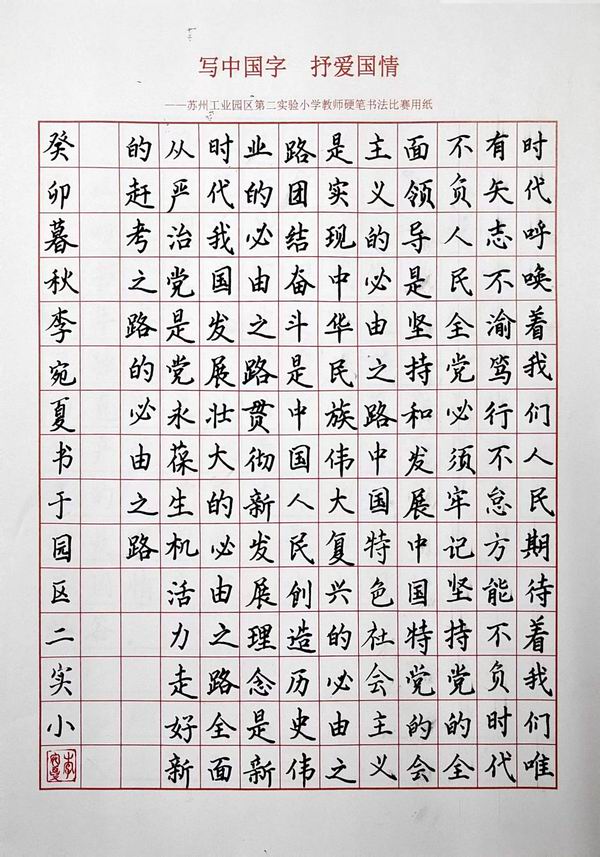 写中国字 抒爱国情
——苏州工业园区第二实验小学教师硬笔书法比赛用纸
时代呼唤着我们人民期待着我们唯
有矢志不渝笃行不怠方能不负时代
不负人民全党必须牢记坚持党的全
面领导是坚持和发展中国特党的会
主义的必由之路中国特色社会主义
是实现中华民族伟大复兴的必由之
路团结奋斗是中国人民创造历史伟
业的必由之路贯彻新发展理念是新
时代我国发展壮大的必由之路全面
从严治党是党永葆生机活力走好新
的赶考之路的必由之路
癸卯暮秋李宛夏书于园区二实小
李宛夏